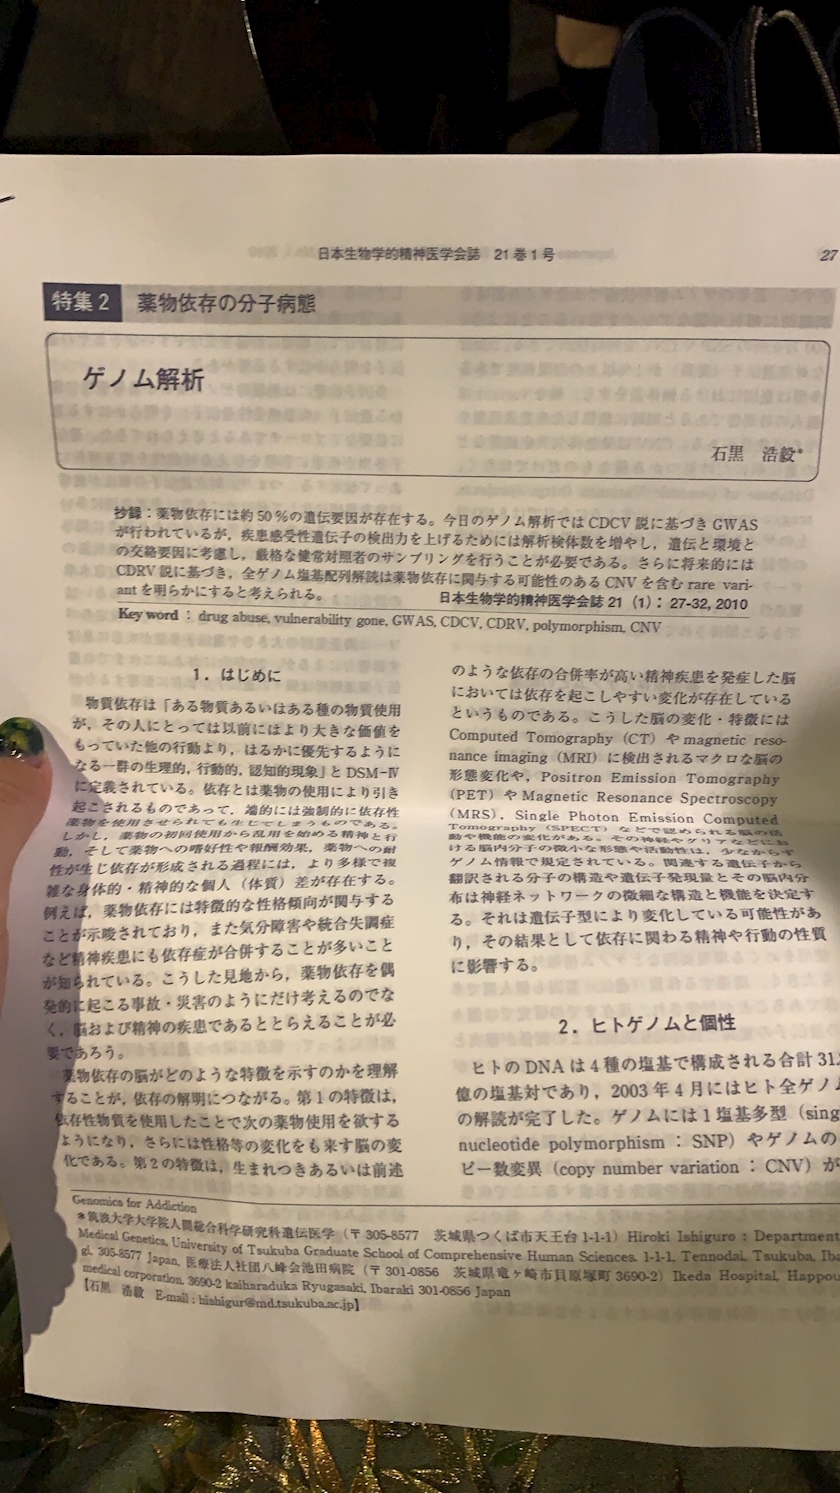 日本生物学的精神医学会誌 21巻1号
27
特集2 薬物依存の分子病態
ゲノム解析
石黒 浩毅*
抄録：薬物依存には約50％の遺伝要因が存在する。今日のゲノム解析ではCDCV説に基づきGWAS
が行われているが，疾患感受性遺伝子の検出力を上げるためには解析検体数を増やし，遺伝と環境と
の交絡要因に考慮し，厳格な健常対照者のサンプリングを行うことが必要である。さらに将来的には
CDRV説に基づき，全ゲノム塩基配列解読は薬物依存に関与する可能性のあるCNVを含むrare vari-
antを明らかにすると考えられる。
日本生物学的精神医学会誌 21（1）：27-32, 2010
Key word：drug abuse, vulnerability gone, GWAS, CDCV, CDRV, polymorphism, CNV
1．はじめに
物質依存は「ある物質あるいはある種の物質使用
が，その人にとっては以前にはより大きな価値を
もっていた他の行動より，はるかに優先するように
なる一群の生理的，行動的，認知的現象」とDSM-Ⅳ
に定義されている。依存とは薬物の使用により引き
起こされるものであって，端的には強制的に依存性
薬物を使用させられても生じてしまうものである。
しかし，薬物の初回使用から乱用を始める精神と行
動，そして薬物への嗜好性や報酬効果，薬物への耐
性が生じ依存が形成される過程には，より多様で複
雑な身体的・精神的な個人（体質）差が存在する。
例えば，薬物依存には特徴的な性格傾向が関与する
ことが示唆されており，また気分障害や統合失調症
など精神疾患にも依存症が合併することが多いこと
が知られている。こうした見地から，薬物依存を偶
発的に起こる事故・災害のようにだけ考えるのでな
く，脳および精神の疾患であるととらえることが必
要であろう。
薬物依存の脳がどのような特徴を示すのかを理解
することが，依存の解明につながる。第1の特徴は，
依存性物質を使用したことで次の薬物使用を欲する
ようになり，さらには性格等の変化をも来す脳の変
化である。第2の特徴は，生まれつきあるいは前述
のような依存の合併率が高い精神疾患を発症した脳
においては依存を起こしやすい変化が存在している
というものである。こうした脳の変化・特徴には
Computed Tomography（CT）やmagnetic reso-
nance imaging（MRI）に検出されるマクロな脳の
形態変化や，Positron Emission Tomography
（PET）やMagnetic Resonance Spectroscopy
（MRS），Single Photon Emission Computed
Tomography（SPECT）などで認められる脳の活
動や機能の変化がある。その神経やグリアなどにお
ける脳内分子の微小な形態や活動性は，少なからず
ゲノム情報で規定されている。関連する遺伝子から
翻訳される分子の構造や遺伝子発現量とその脳内分
布は神経ネットワークの微細な構造と機能を決定す
る。それは遺伝子型により変化している可能性があ
り，その結果として依存に関わる精神や行動の性質
に影響する。
2．ヒトゲノムと個性
ヒトのDNAは4種の塩基で構成される合計31.
億の塩基対であり，2003年4月にはヒト全ゲノム
の解読が完了した。ゲノムには1塩基多型（sing
nucleotide polymorphism：SNP）やゲノムの
ピー数変異（copy number variation：CNV）が
Genomics for Addiction
*筑波大学大学院人間総合科学研究科遺伝医学（〒305-8577 茨城県つくば市天王台1-1-1）Hiroki Ishiguro：Department
Medical Genetics, University of Tsukuba Graduate School of Comprehensive Human Sciences. 1-1-1, Tennodai, Tsukuba, Iba
gi, 305-8577 Japan, 医療法人社団八峰会池田病院（〒301-0856 茨城県竜ヶ崎市貝原塚町3690-2）Ikeda Hospital, Happou
medical corporation, 3690-2 kaiharaduka Ryugasaki, Ibaraki 301-0856 Japan
【石黒 浩毅 E-mail：hishigur@md.tsukuba.ac.jp】